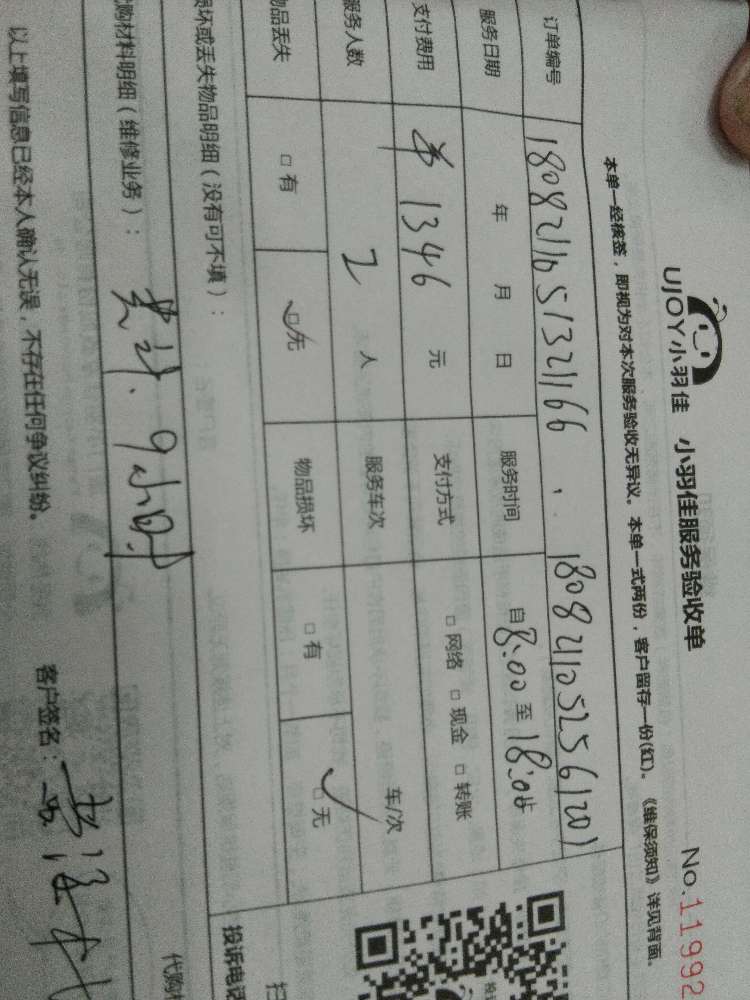 UJOY小羽佳 小羽佳服务验收单 No.11992
本单一经核签，即视为对本次服务验收无异议。本单一式两份，客户留存一份(红)。《维保须知》详见背面。
订单编号 180821105132166 , 1808211052561201
服务日期 年 月 日 服务时间 自8:00至18:00
支付费用 ¥1346 元 支付方式 □网络 □现金 □转账
服务人数 2 人 服务车次 车/次
物品丢失 □有 □无 物品损坏 □有 □无
损坏或丢失物品明细（没有可不填）：
投诉电话
代购材料明细（维修业务）：
共计.9小时
以上填写信息已经本人确认无误，不存在任何争议纠纷。 客户签名：